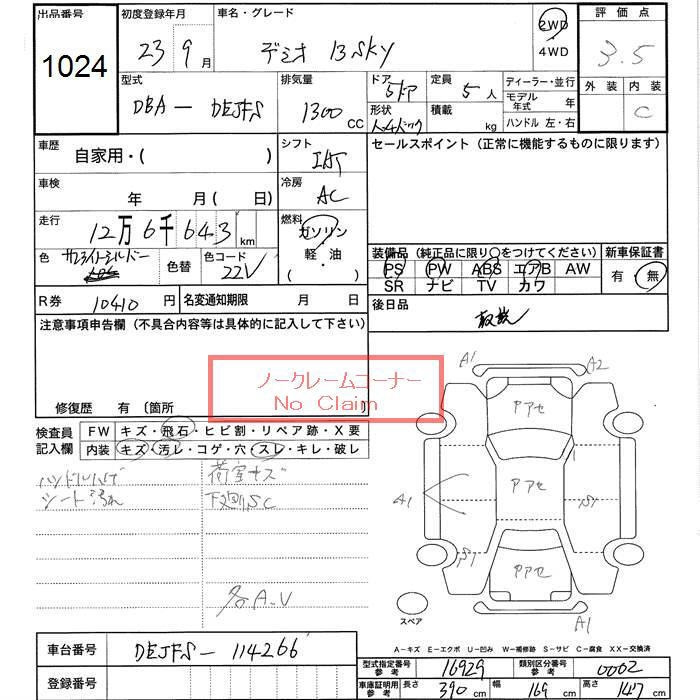 出品番号 初度登録年月 車名・グレード 2WD 評価点
1024 23 9月 デミオ 13SKY 4WD 3.5
型式 排気量 ドア 5ドア 定員 5人 ディーラー・並行 外装 内装
DBA - DEJFS 1300 CC 形状 積載 kg モデル年式 年 C
ハンドル 左・右
車歴 自家用・( ) シフト IAT セールスポイント(正常に機能するものに限ります)
車検 年 月( 日) 冷房 AC
走行 12万6千643 km 燃料 ガソリン
軽・油
( ・ )
色 色替 色コード 22V 装備品(純正品に限り〇をつけてください) 新車保証書
PS PW ABS エアB AW 有 無
SR ナビ TV カワ
R券 10410 円 名変通知期限 月 日 後日品 取説
注意事項申告欄(不具合内容等は具体的に記入して下さい)
ノークレームコーナー
No Claim
修復歴 有〔箇所
A1 A2
検査員 FW キズ・飛石・ヒビ割・リペア跡・X要
記入欄 内装 キズ・汚レ・コゲ・穴・スレ・キレ・破レ
Pアセ
ハンドルハゲ 荷室キズ
シート汚れ 下廻りSC
A1 Pアセ S1
S1 Pアセ
各A.V
スペア A1
A-キズ E-エクボ U-凹み W-補修跡 S-サビ C-腐食 XX-交換済
車台番号 DEJFS-114266
型式指定番号 参考 16929 類別区分番号 参考 0002
登録番号
車庫証明用 参考 長さ 390 cm 幅 169 cm 高さ 147 cm